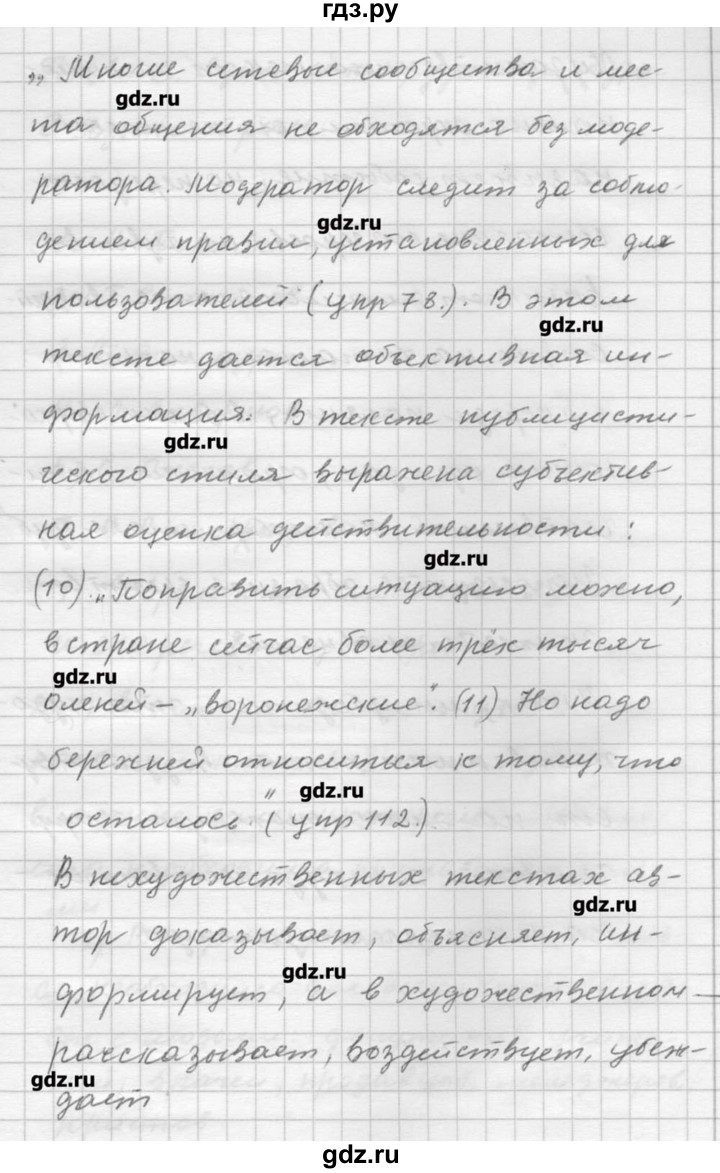 гдз.ру
„ Многие сетевые сообщества и мес-
gdz.ru
та общения не обходятся без моде-
ратора. Модератор следит за соблю-
gdz.ru
дением правил, установленных для
пользователей (упр 78.). В этом
gdz.ru
тексте дается объективная ин-
формация. В тексте публицисти-
gdz.ru
ческого стиля выражена субъектив-
ная оценка действительности:
gdz.ru
(10). „Поправить ситуацию можно,
в стране сейчас более трёх тысяч
gdz.ru
оленей – „воронежские". (11) Но надо
бережней относиться к тому, что
gdz.ru
осталось" (упр 112.).
В нехудожественных текстах ав-
gdz.ru
тор доказывает, объясняет, ин-
gdz.ru
формирует, а в художественном –
рассказывает, воздействует, убеж-
gdz.ru
дает
gdz.ru